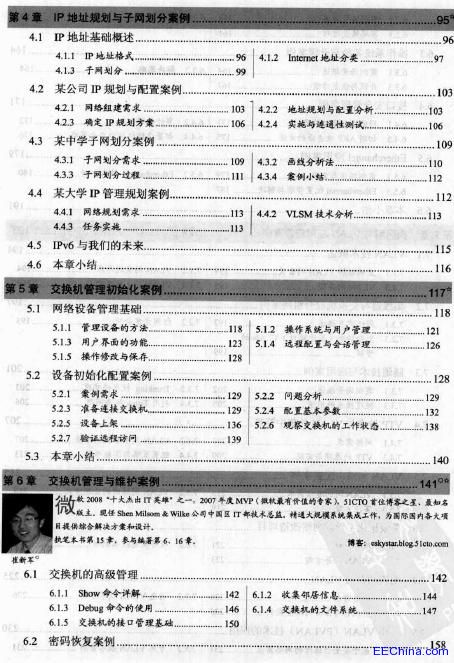 第 4 章 IP 地址规划与子网划分案例 95
4.1 IP 地址基础概述 96
4.1.1 IP 地址格式 96 4.1.2 Internet 地址分类 97
4.1.3 子网划分 99
4.2 某公司 IP 规划与配置案例 103
4.2.1 网络组建需求 103 4.2.2 地址规划与配置分析 103
4.2.3 确定 IP 规划方案 106 4.2.4 实施与连通性测试 106
4.3 某中学子网划分案例 109
4.3.1 子网划分需求 109 4.3.2 画线分析法 110
4.3.3 子网划分过程 111 4.3.4 案例小结 112
4.4 某大学 IP 管理规划案例 112
4.4.1 网络规划需求 113 4.4.2 VLSM 技术分析 113
4.4.3 任务实施 113
4.5 IPv6 与我们的未来 115
4.6 本章小结 116
第 5 章 交换机管理初始化案例 117
5.1 网络设备管理基础 118
5.1.1 管理设备的方法 118 5.1.2 操作系统与用户管理 121
5.1.3 用户界面的功能 123 5.1.4 远程配置与会话管理 126
5.1.5 操作修改与保存 128
5.2 设备初始化配置案例 128
5.2.1 案例需求 129 5.2.2 问题分析 129
5.2.3 准备连接交换机 129 5.2.4 配置基本参数 132
5.2.5 设备上架 136 5.2.6 观察交换机的工作状态 138
5.2.7 验证远程访问 139
5.3 本章小结 140
第 6 章 交换机管理与维护案例 141
微软 2008 “十大杰出 IT 英雄”之一，2007 年度 MVP（微软最有价值的专家），51CTO 首位博客之星、最知名
版主。现任 Shen Milsom & Wilke 公司中国区 IT 部技术总监，精通大规模系统集成工作，为国际国内各大项
目提供综合解决方案和设计。
执笔本书第 15 章，参与编著第 6、16 章。
博客：eskystar.blog.51cto.com
崔新军
6.1 交换机的高级管理 142
6.1.1 Show 命令详解 142 6.1.2 收集邻居信息 144
6.1.3 Debug 命令的使用 146 6.1.4 交换机的文件系统 147
6.1.5 交换机的接口管理基础 150
6.2 密码恢复案例 158
EEChina.com